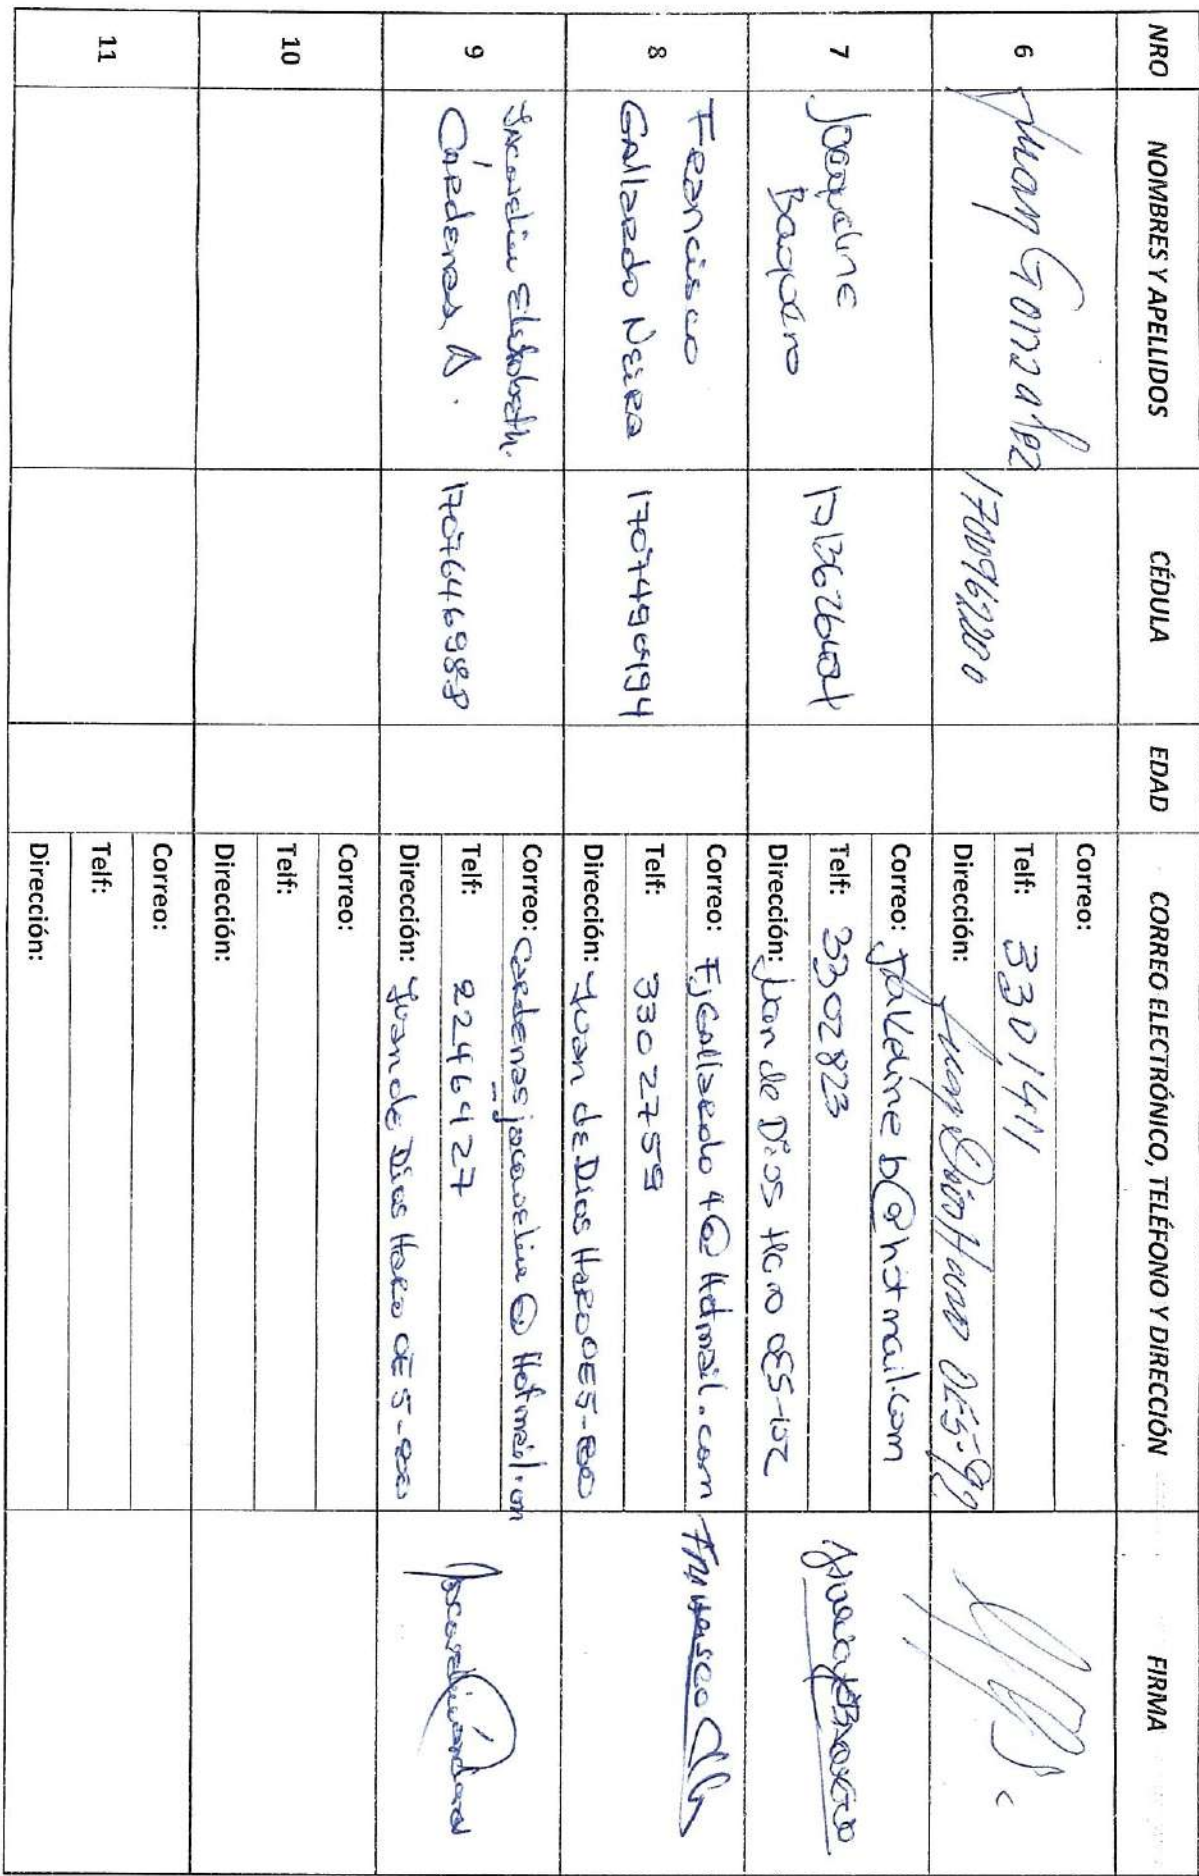 NRO NOMBRES Y APELLIDOS CÉDULA EDAD CORREO ELECTRÓNICO, TELÉFONO Y DIRECCIÓN FIRMA
6 Juan Gonzalez 1700962200
Correo:
Telf: 3301411
Dirección: Juan Dios Haro OE5-92
7 Jacqueline
Baquero
Correo: jakeline b@hotmail.com
Telf: 3302823
Dirección: Juan de Dios Haro OE5-102
8 Francisco
Gallardo Neira 1707490494
Correo: FjGallardo 4@Hotmail.com
Telf: 3302759
Dirección: Juan de Dios Haro OE5-80
9 Jacqueline Elizabeth.
Cárdenas A. 1707646988
Correo: cardenas_jacqueline@Hotmail.com
Telf: 2246427
Dirección: Juan de Dios Haro OE5-80
10
Correo:
Telf:
Dirección:
11
Correo:
Telf:
Dirección: